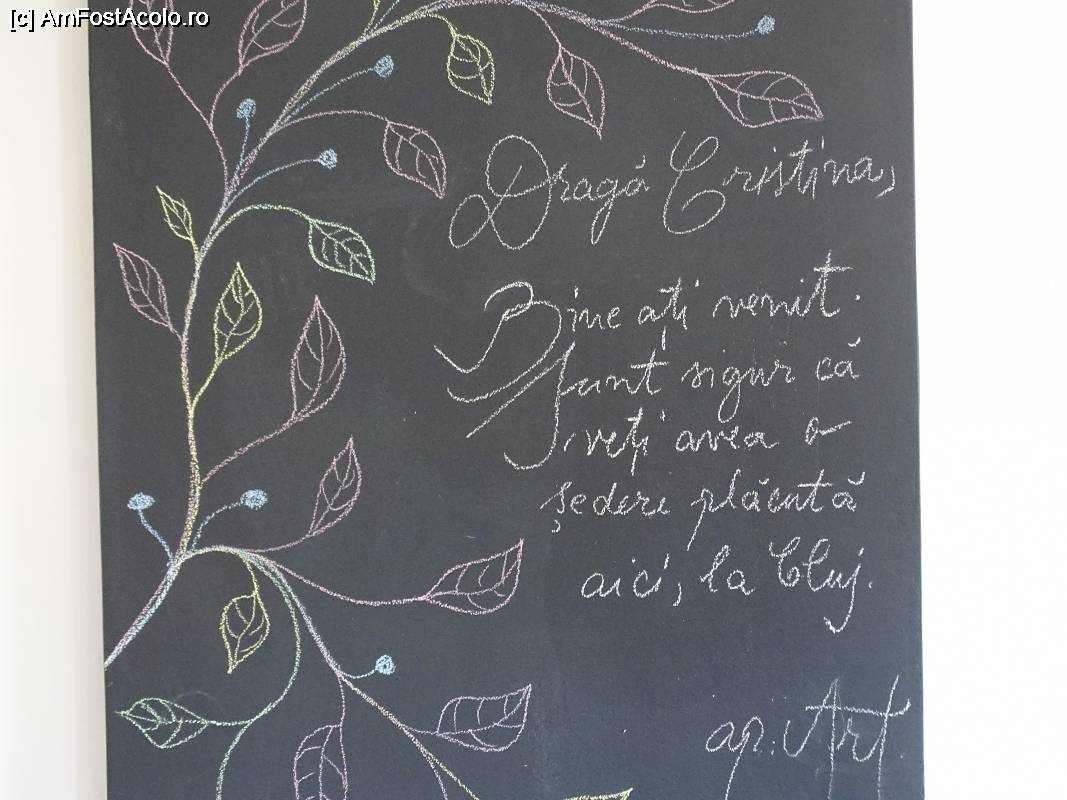 [c] AmFostAcolo.ro
Dragă Cristina,
Bine ați venit.
Sunt sigur că
veți avea o
ședere plăcută
aici, la Cluj.
ap. Art